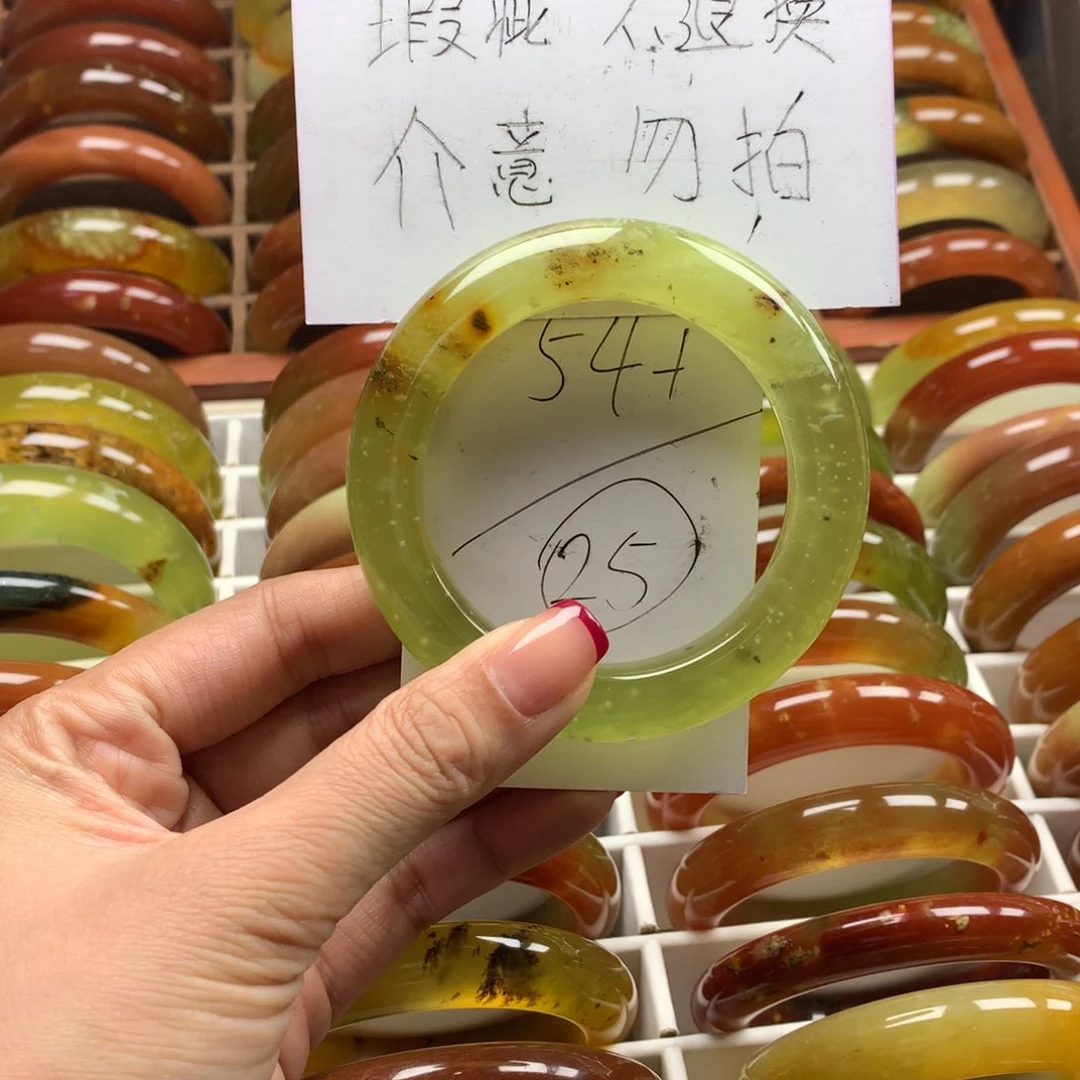 瑕疵 不退换
介意 勿拍
54+
25